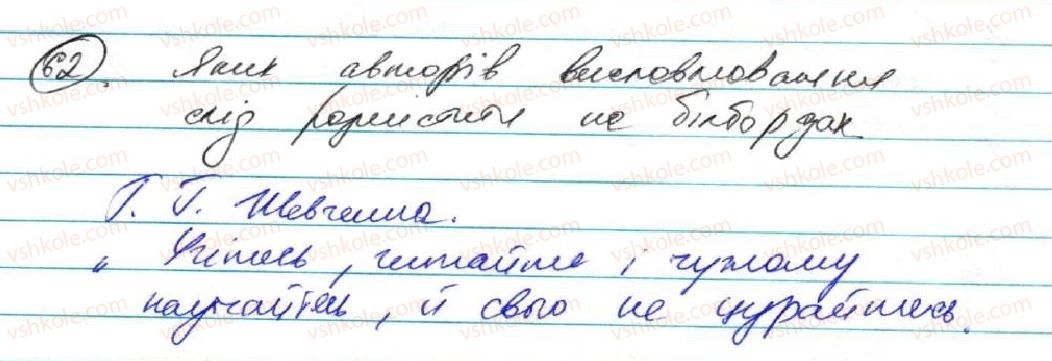 62. Яких авторів висловлювання
слід розмістити на білбордах
Т. Г. Шевченка.
„Учітесь, читайте і чужому
научайтесь, й свого не цурайтесь.